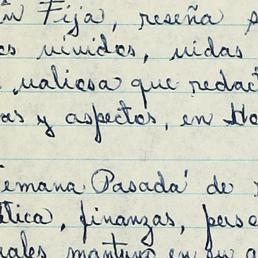 ón Fija, reseña
os vividos, vidas
valiosa que redac
as y aspectos, en Ho
emana Pasada" de
ítica, finanzas, perso
rales mantuvo en su